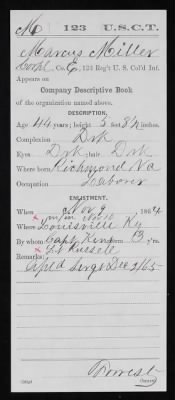 M 123 U.S.C.T.
Marcus Miller
Corpl, Co. E, 123 Reg't U. S. Col'd Inf.
Appears on
Company Descriptive Book
of the organization named above.
DESCRIPTION.
Age 44 years; height 5 feet 8¼ inches.
Complexion Drk
Eyes Drk; hair Drk
Where born Richmond Va
Occupation Laborer
ENLISTMENT.
When Nov 9, 1864
x
Where Louisville Ky
By whom Capt Kin; term 3 y'rs.
x Lt Russell
Remarks: Aptd Sergt Dec 2/65
Forrest
Copyist.